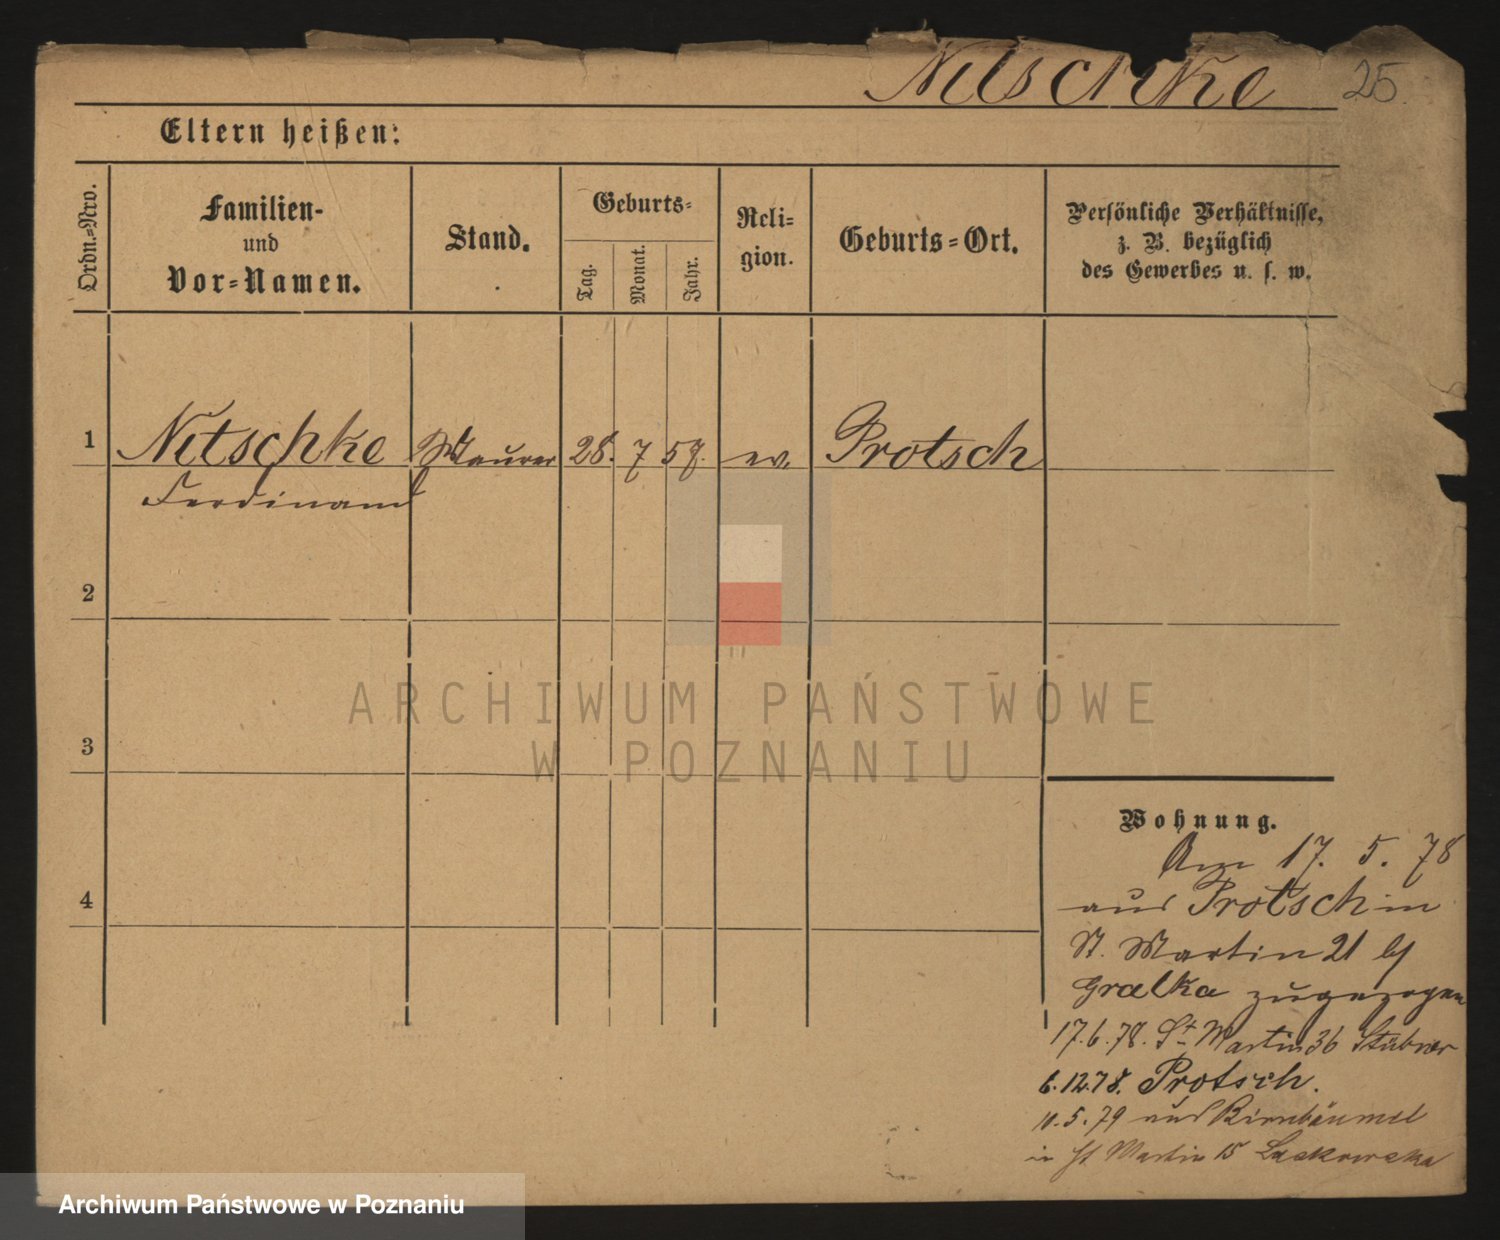 Nitschke 25.
Eltern heißen:
Ordn.=Nro.
Familien-
und
Vor=Namen.
Stand.
Geburts=
Tag.
Monat.
Jahr.
Reli=
gion.
Geburts=Ort.
Persönliche Verhältnisse,
z. B. bezüglich
des Gewerbes u. s. w.
1 Nitschke Maurer 28. 7 58. ev. Protsch
Ferdinand
2
3
4
Wohnung.
Am 17. 5. 78
aus Protsch in
St. Martin 21 by
Gralka zugezogen
17.6.78. St Martin 36 Stübner
6.12.78. Protsch.
11.5.79 aus Birnbäumel
in St Martin 15
ARCHIWUM PAŃSTWOWE
W POZNANIU
Archiwum Państwowe w Poznaniu